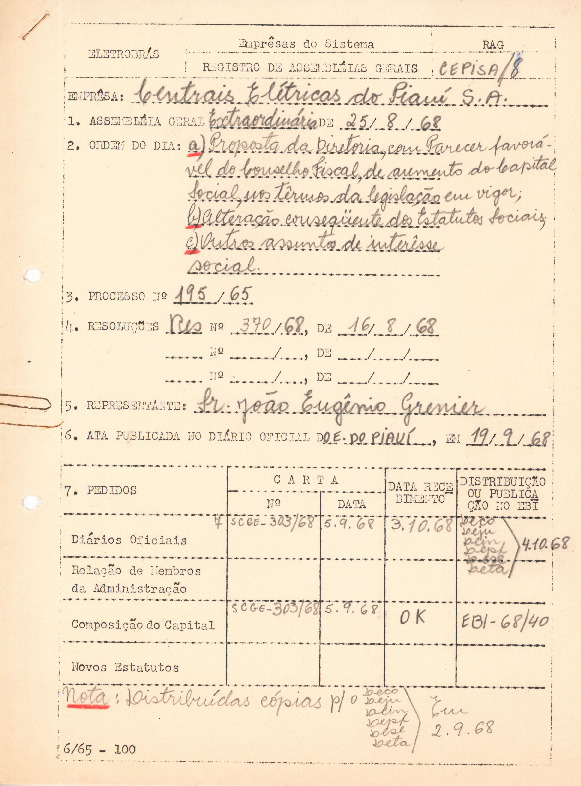 ELETROBRÁS
Emprêsas do Sistema
RAG
REGISTRO DE ASSEMBLÉIAS GERAIS
CEPISA/8
EMPRÊSA: Centrais Elétricas do Piauí S.A.
1. ASSEMBLÉIA GERAL Extraordinária DE 25/8/68
2. ORDEM DO DIA: a) Proposta da Diretoria, com Parecer favorá-
vel do Conselho Fiscal, de aumento do Capital
Social, nos têrmos da legislação em vigor;
b) Alteração conseqüente dos Estatutos Sociais;
c) Outros assuntos de interêsse
social.
3. PROCESSO Nº 195/65
4. RESOLUÇÕES Res Nº 370/68, DE 16/8/68
Nº ___/___, DE ___/___/___
Nº ___/___, DE ___/___/___
5. REPRESENTANTE: Sr. João Eugênio Grenier
6. ATA PUBLICADA NO DIÁRIO OFICIAL DO E. DO PIAUÍ, EM 19/9/68
7. PEDIDOS
C A R T A
Nº
DATA
DATA RECE
BIMENTO
DISTRIBUIÇÃO
OU PUBLICA
ÇÃO NO EBI
Diários Oficiais
7 SCGE-303/68 5.9.68 3.10.68
Deco
Deju
Delin
Depl
Dese
Deta
4.10.68
Relação de Membros
da Administração
Composição do Capital
SCGE-303/68 5.9.68 OK EBI-68/40
Novos Estatutos
Nota: Distribuídas cópias p/o
Deco
Deju
Delin
Depl
Dese
Deta
Em
2.9.68
6/65 - 100